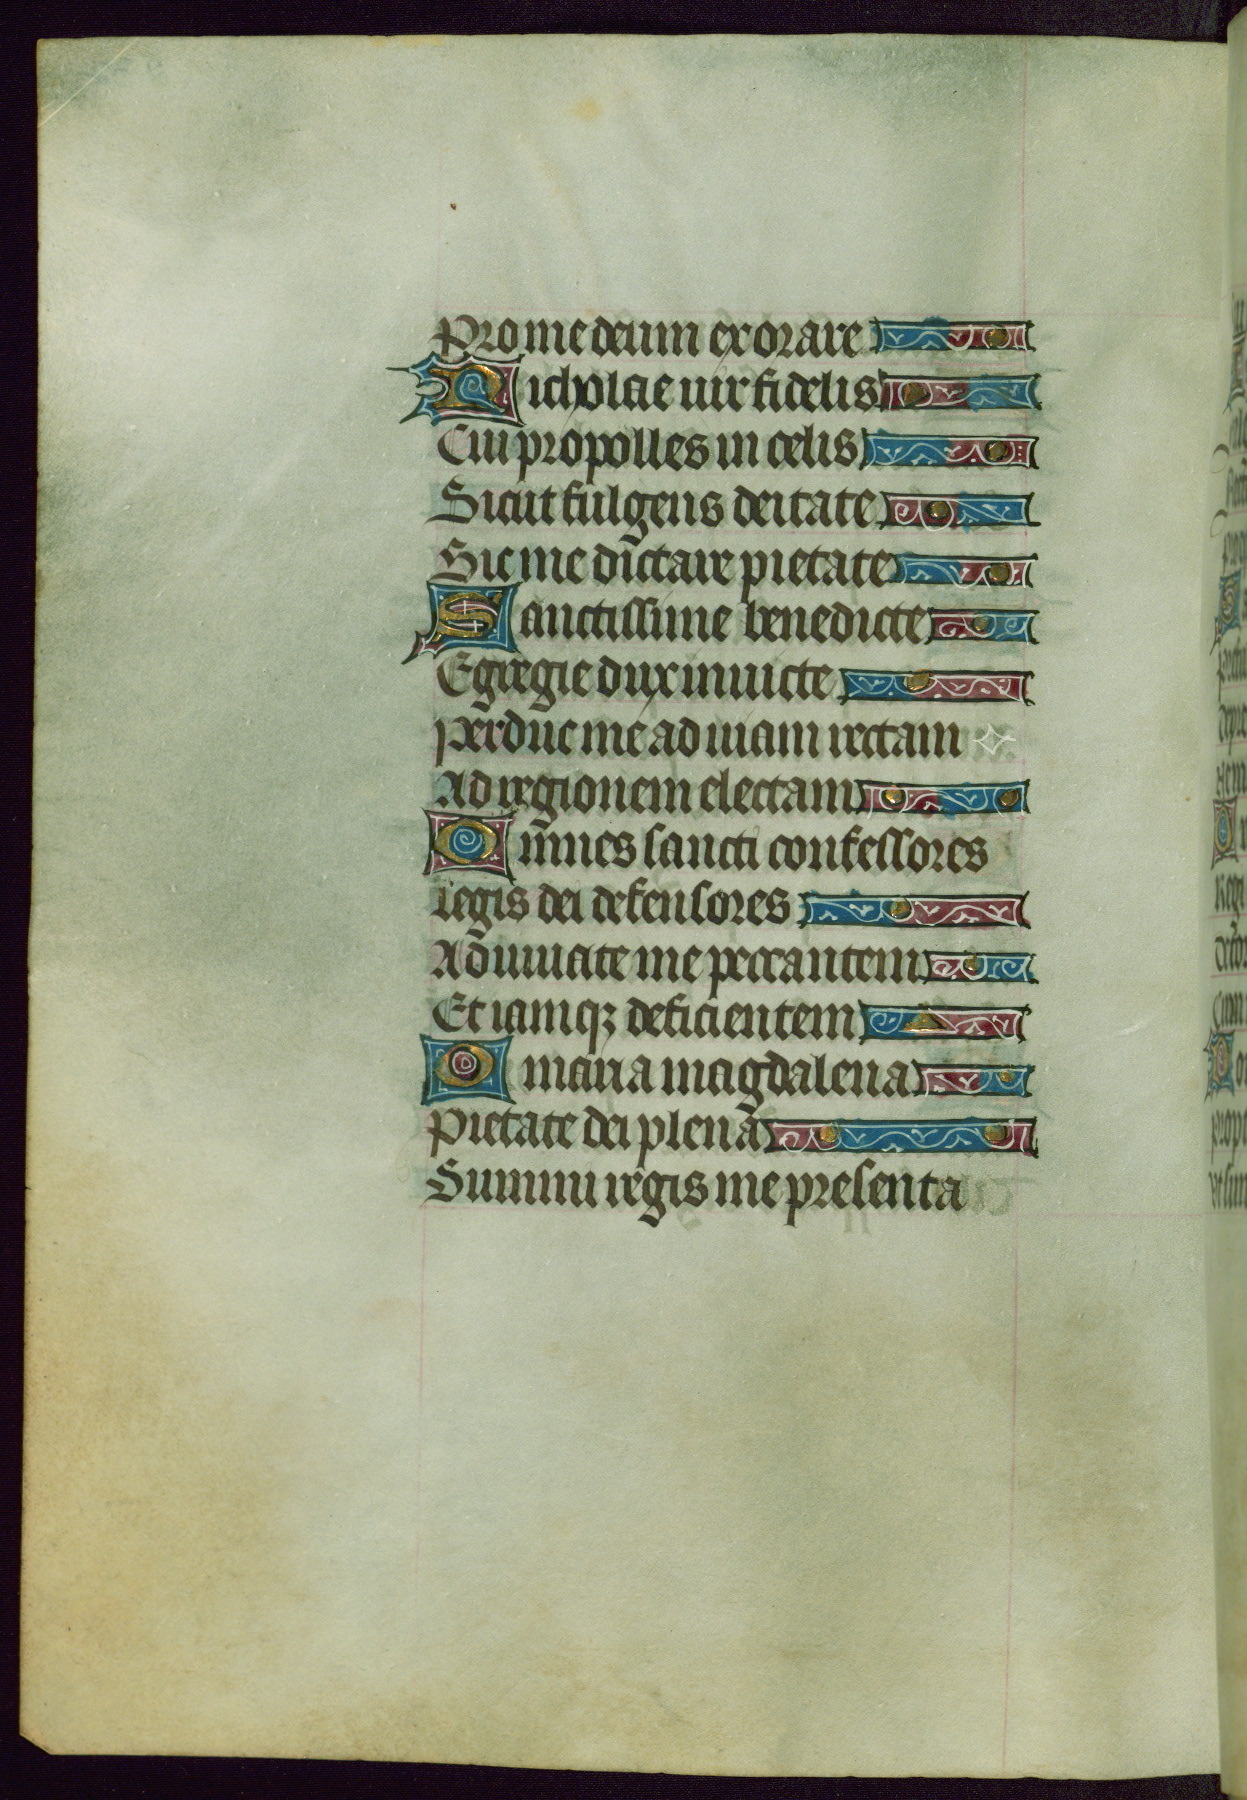 Pro me deum exorare
Nicholae uir fidelis
Cui propolles in celis
Sicut fulgens deitate
Sic me dictare pietate
Sanctissime benedicte
Egregie dux inuicte
Perduc me ad uiam rectam
Ad regionem electam
Omnes sancti confessores
Legis dei defensores
Adiuuate me peccantem
Et iamqz deficientem
O maria magdalena
Pietate dei plena
Summi regis me presenta